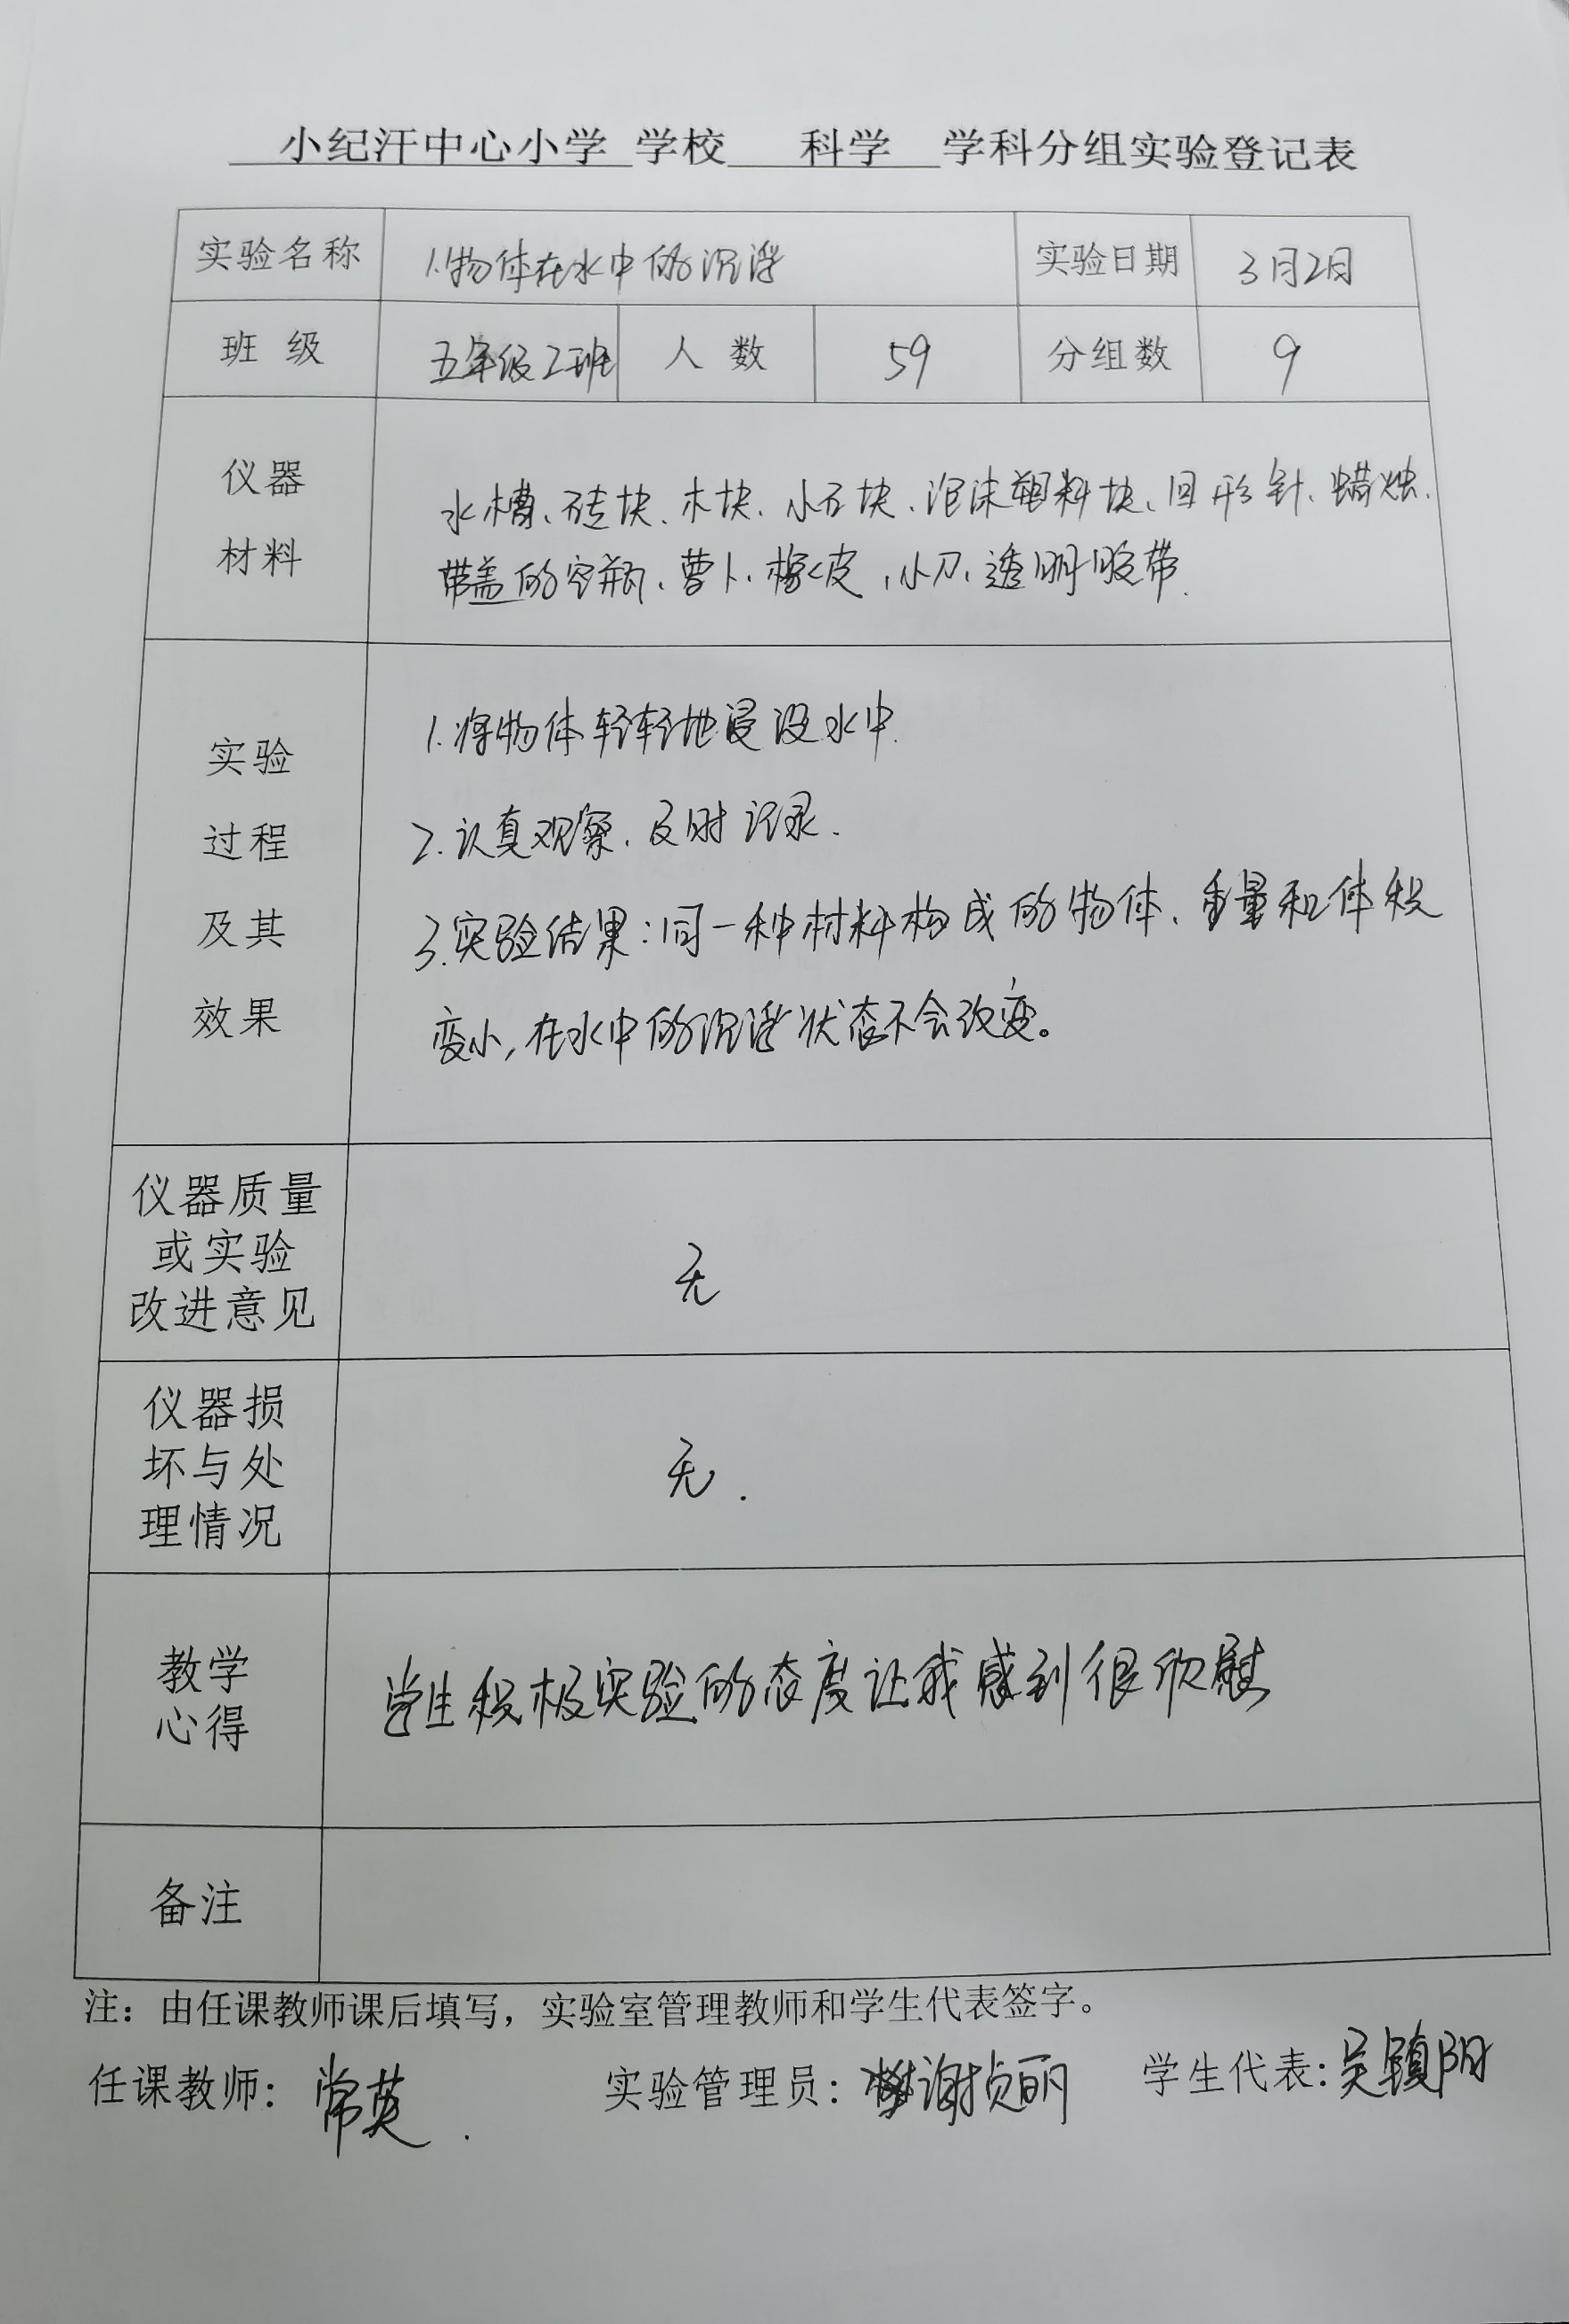 小纪汗中心小学 学校 科学 学科分组实验登记表
实验名称 1.物体在水中的沉浮 实验日期 3月2日
班 级 五年级2班 人 数 59 分组数 9
仪器
材料
水槽、砖块、木块、小石块、泡沫塑料块、回形针、蜡烛、
带盖的空瓶、萝卜、橡皮、小刀、透明胶带.
实验
过程
及其
效果
1.将物体轻轻地浸没水中.
2.认真观察.及时记录.
3.实验结果:同一种材料构成的物体、重量和体积
变小,在水中的沉浮状态不会改变。
仪器质量
或实验
改进意见
无
仪器损
坏与处
理情况
无.
教学
心得
学生积极实验的态度让我感到很欣慰
备注
注：由任课教师课后填写，实验室管理教师和学生代表签字。
任课教师：常英. 实验管理员：谢贞丽 学生代表:吴镇阳